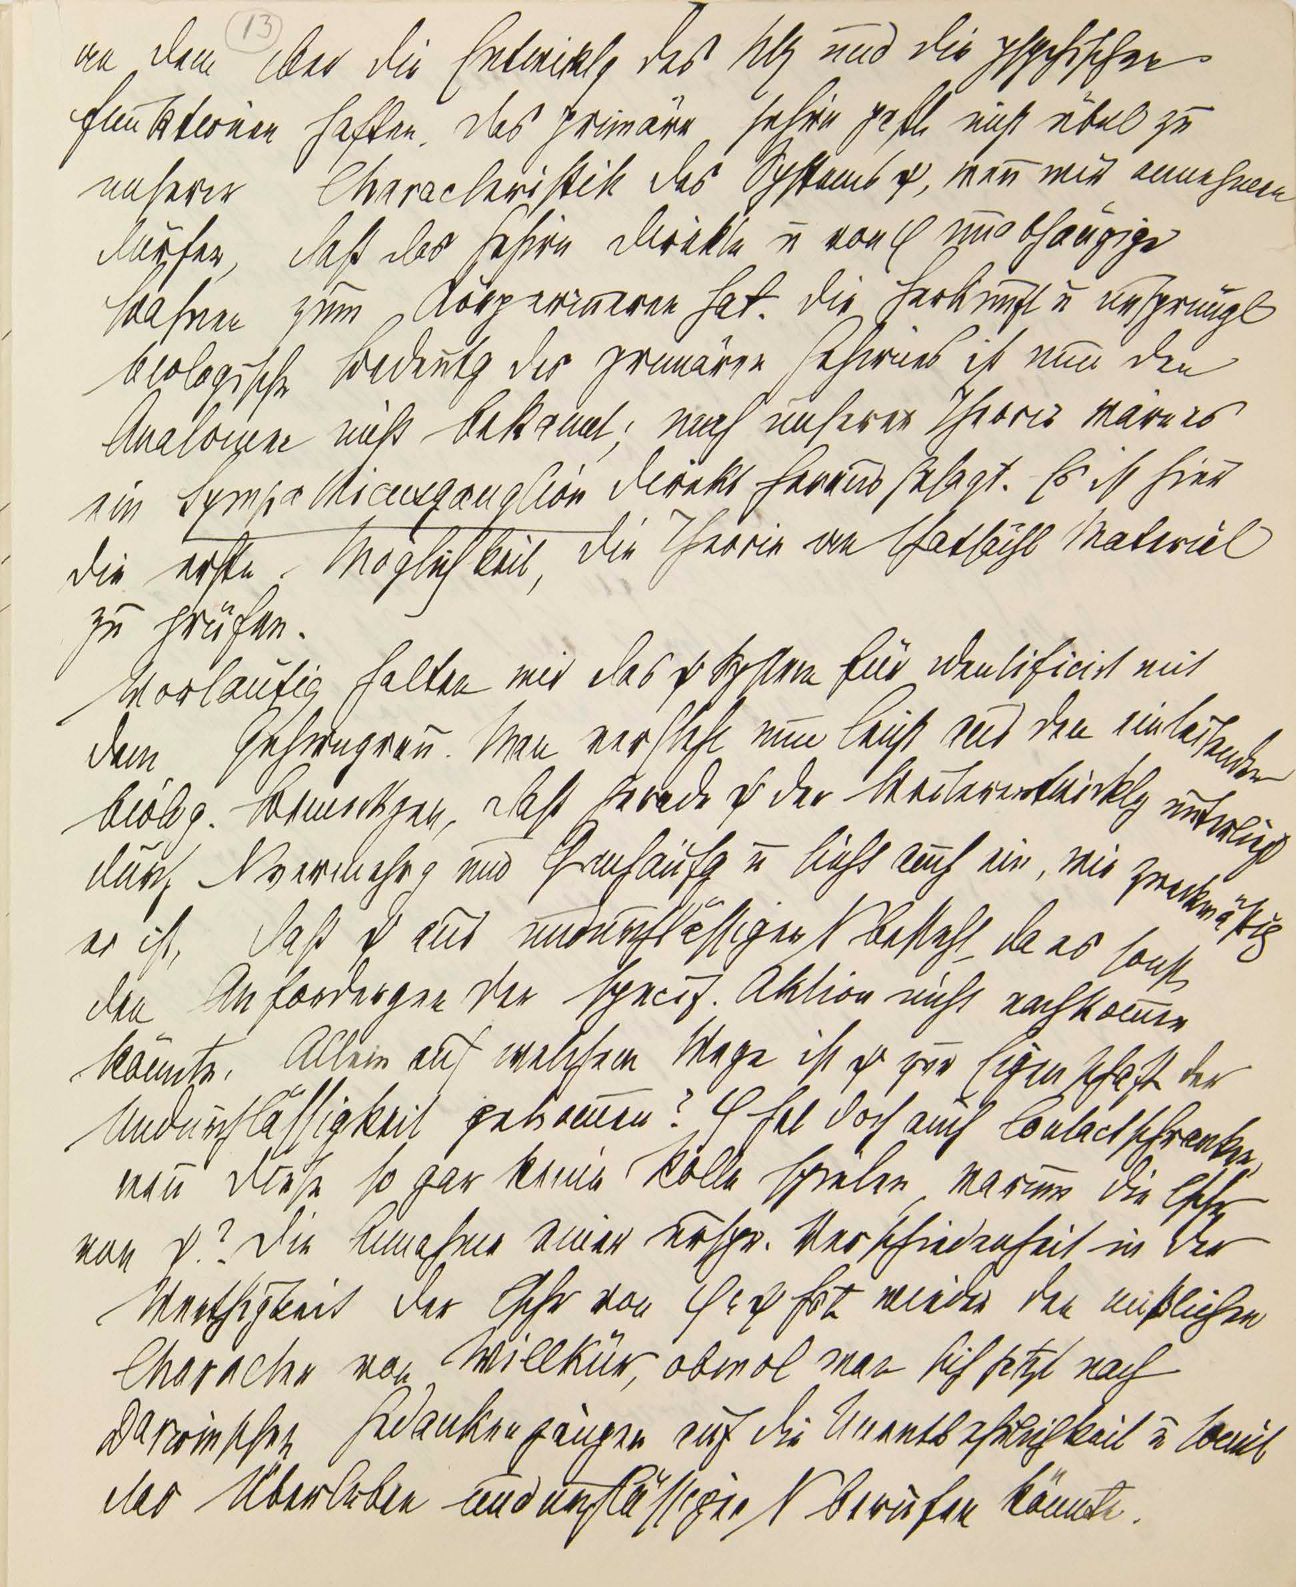 13
an dem über die Entwicklg des Ub und die psychischen
Funktionen haften. Das primäre Gehirn paßt nicht übel zu
unserer Characteristik des Systems ψ, wenn wir annehmen
dürfen, daß das Gehirn direkte u von φ unabhängige
Bahnen zum Körperinneren hat. Die Herkunft u ursprüngl
biologische Bedeutg des primären Gehirns ist nun den
Anatomen nicht bekannt; nach unserer Theorie wäre es
ein Sympathicusganglion direkt herausgesagt. Es ist hier
die erste Möglichkeit, die Theorie an thatsächl Material
zu prüfen.
Vorläufig halten wir das ψ System für identificirt mit
dem Gehirngrau. Man versteht nun leicht aus den einleitenden
biolog. Bemerkgen, daß gerade ψ der Weiterentwicklg unterliegt
durch Nvermehrg und Qanhäufg u sieht auch ein, wie zweckmäßig
es ist, daß ψ aus undurchlässigen N besteht, da es sonst
den Anfordergen der specif. Aktion nicht nachkommen
könnte. Allein auf welchem Wege ist ψ zur Eigenschaft der
Undurchlässigkeit gekommen? φ hat doch auch Contactschranken,
wenn diese so gar keine Rolle spielen, warum die Cschr
von ψ? Die Annahme einer urspr. Verschiedenheit in der
Werthigkeit der Cschr von φ u ψ hat wieder den mißlichen
Charakter von Willkür, obwol man sich jetzt nach
Darwinschen Gedankengängen auf die Unentbehrlichkeit u somit
das Überleben undurchlässiger N berufen könnte.